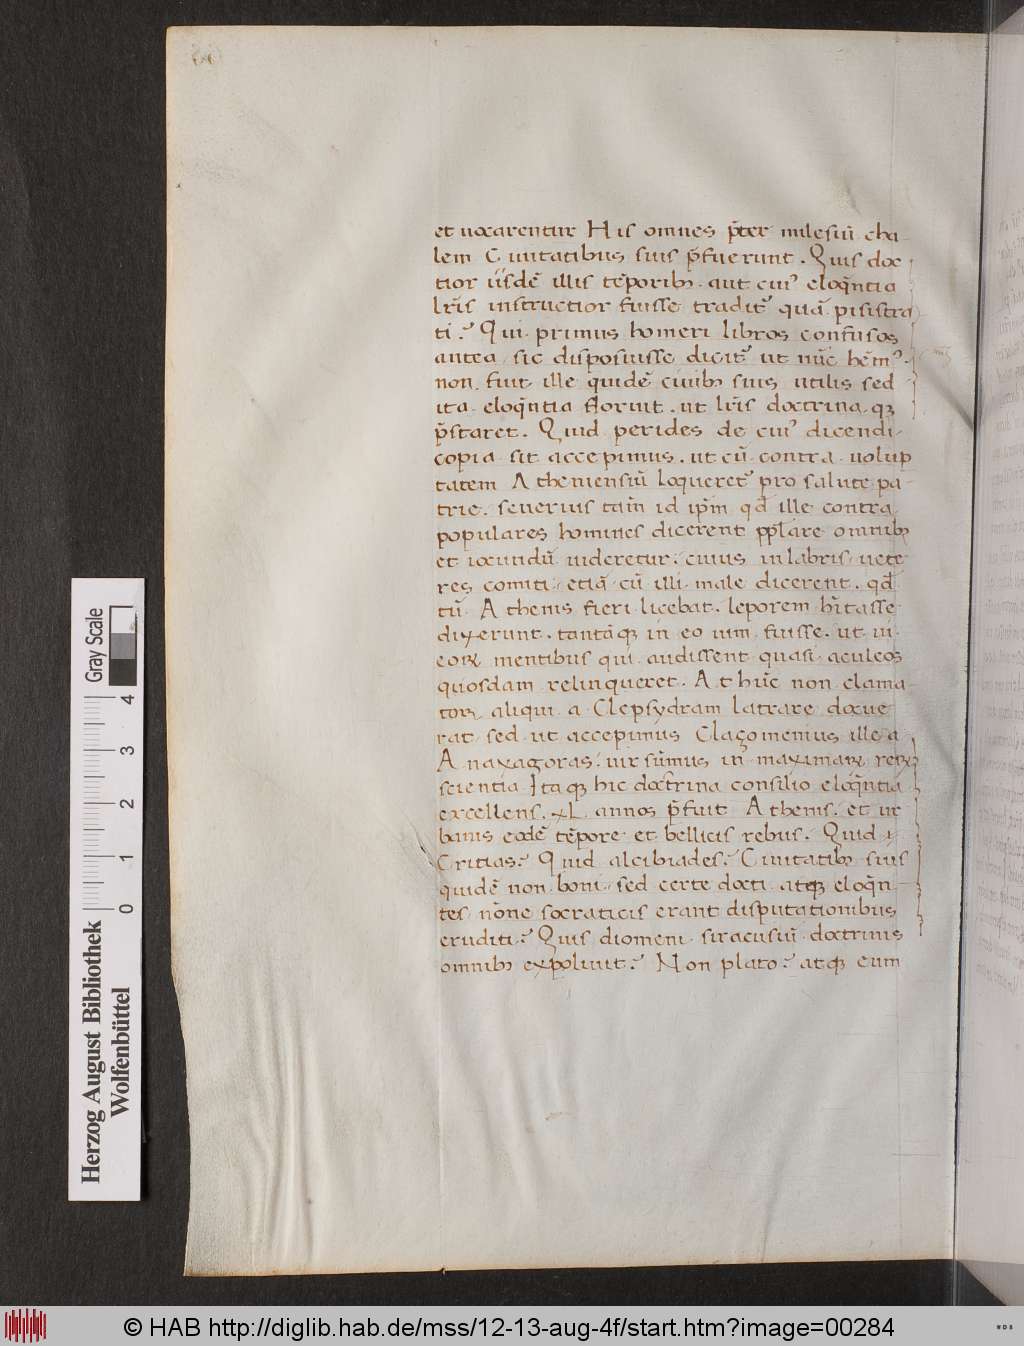 et uocarentur His omnes p̄ter milesiū cha-
lem Ciuitatibus suis p̄fuerunt. Quis doc
tior iisdē illis tēporibꝫ. aut cuiꝰ eloq̄ntia
lr̄is instructior fuisse tradit᷑ quā pisistra
ti? Qui primus homeri libros confusos
antea sic disposuisse dicit᷑ ut nūc hēmꝰ.
non fuit ille quidē ciuibꝫ suis utilis sed
ita eloq̄ntia floruit. ut lr̄is doctrina qꝫ
p̄staret. Quid perides de cuiꝰ dicendi
copia sit accepimus. ut cū contra uolup
tatem Atheniensiū loqueret᷑ pro salute pa-
trie. seuerius tam̄ id ip̄m qd̄ ille contra
populares homines dicerent pplare omnibꝫ
et iocundū uideretur: cuius in labris uete
res comiti etiā cū illi male dicerent. qd̄
tū Athenis fieri licebat. leporem hītasse
dixerunt. tantāqꝫ in eo uim fuisse. ut in
eoꝝ mentibus qui audissent quasi aculeos
quosdam relinqueret. At hūc non clama
toꝝ aliqui a Clepsydram latrare docue
rat sed ut accepimus Claçomenius ille a
Anaxagoras: uir sūmus in maximaꝝ reꝝ
scientia Itaqꝫ hic doctrina consilio eloq̄ntia
excellens. xL annos p̄fuit Athenis. et ur
banis eodē tēpore et bellicis rebus. Quid
Critias? Quid alcibiades? Ciuitatibꝫ suis
quidē non boni sed certe docti atqꝫ eloq̄n-
tes nōne socraticis erant disputationibus
eruditi? Quis diomeni siracusiū doctrinis
omnibꝫ expoliuit? Non plato? atqꝫ eum
Herzog August Bibliothek
Wolfenbüttel
Gray Scale
0 1 2 3 4
© HAB http://diglib.hab.de/mss/12-13-aug-4f/start.htm?image=00284